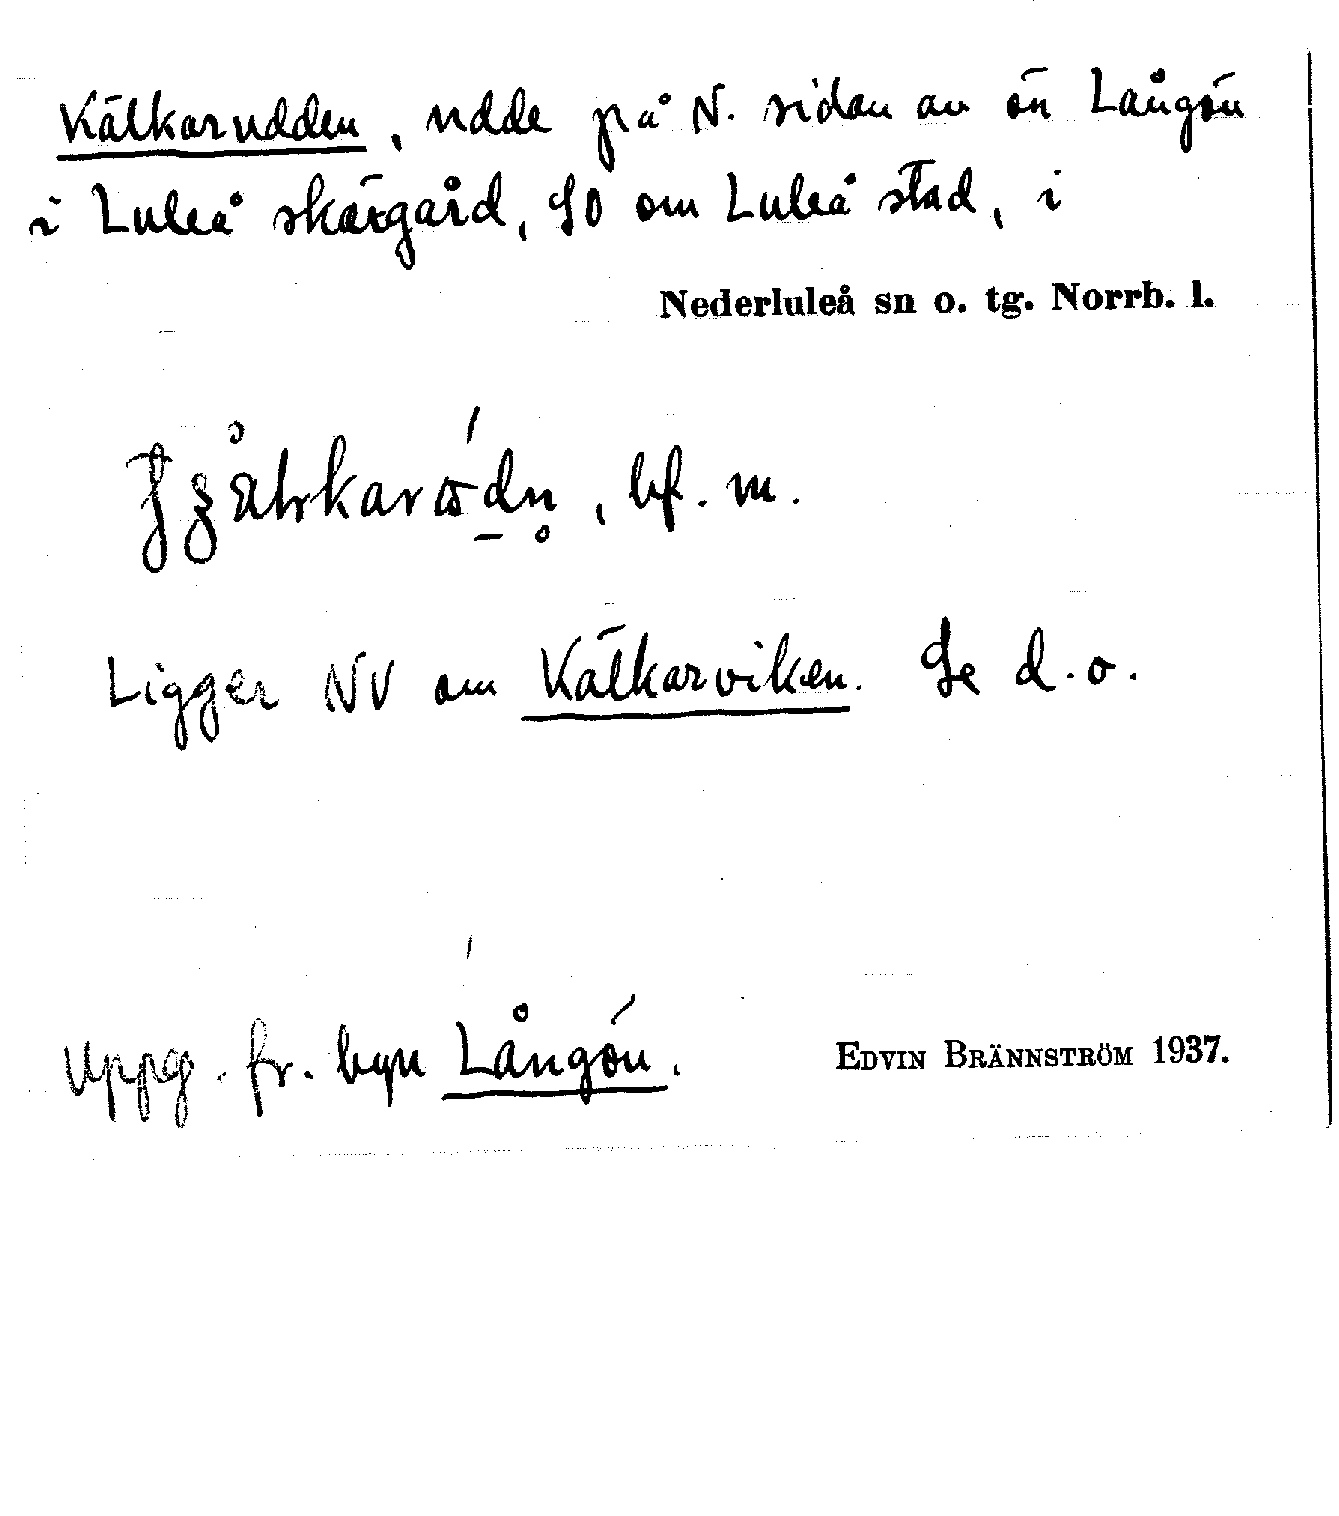 Kälkarudden, udde på N. sidan av ön Långön
i Luleå skärgård, SO om Luleå stad, i
Nederluleå sn o. tg. Norrb. l.
, bf. m.
Ligger NV om Kälkarviken. Se d. o.
Uppg. fr. byn Långön.
EDVIN BRÄNNSTRÖM 1937.